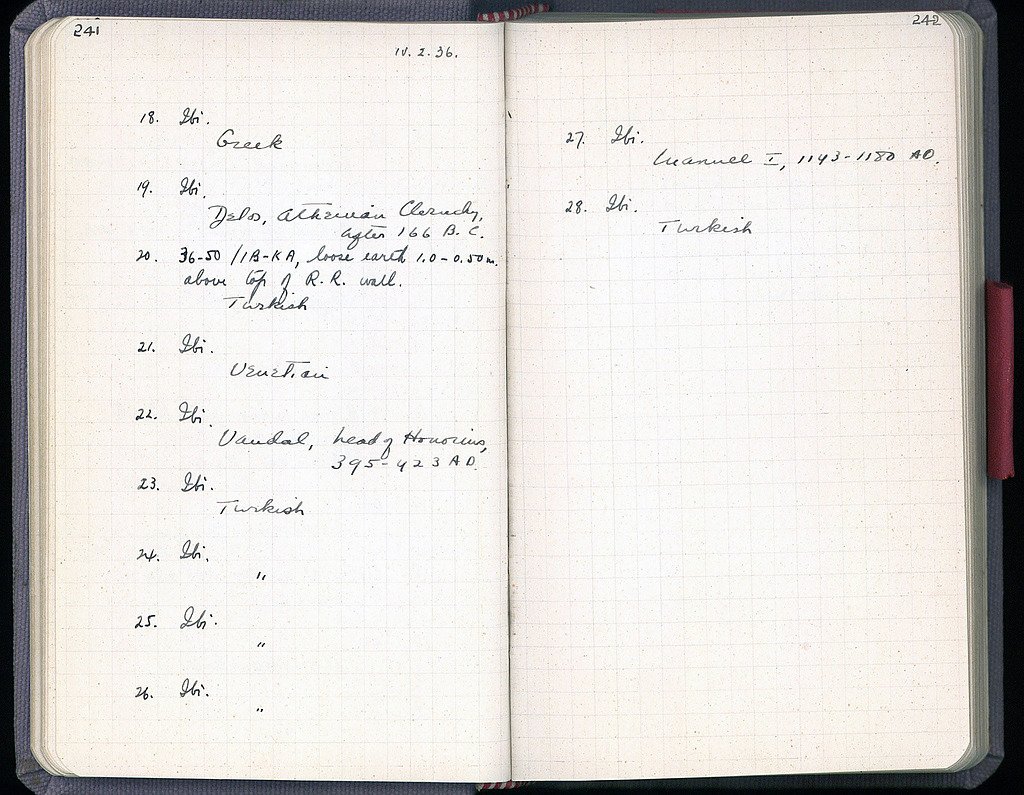 241
IV. 2. 36.
18. Ibi.
Greek
19. Ibi.
Delos, Athenian Cleruchy,
after 166 B.C.
20. 36-50 / IB-KA, loose earth 1.0-0.50 m.
above top of R.R. wall.
Turkish
21. Ibi.
Venetian
22. Ibi.
Vandal, head of Honorius,
395-423 AD.
23. Ibi.
Turkish
24. Ibi.
"
25. Ibi.
"
26. Ibi.
"
242
27. Ibi.
Manuel I, 1143-1180 AD.
28. Ibi.
Turkish